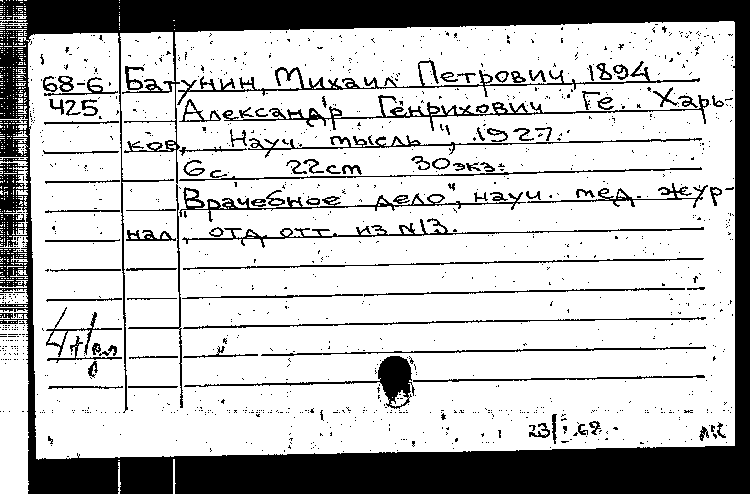 68-6 Батунин, Михаил Петрович, 1894
425 Александр Генрихович Ге. Харь-
ков, "Науч. мысль", 1927.
6 с. 22 cm 30 экз.
"Врачебное дело", науч. мед. жур-
нал, отд. отт. из N13.
23/I.68.